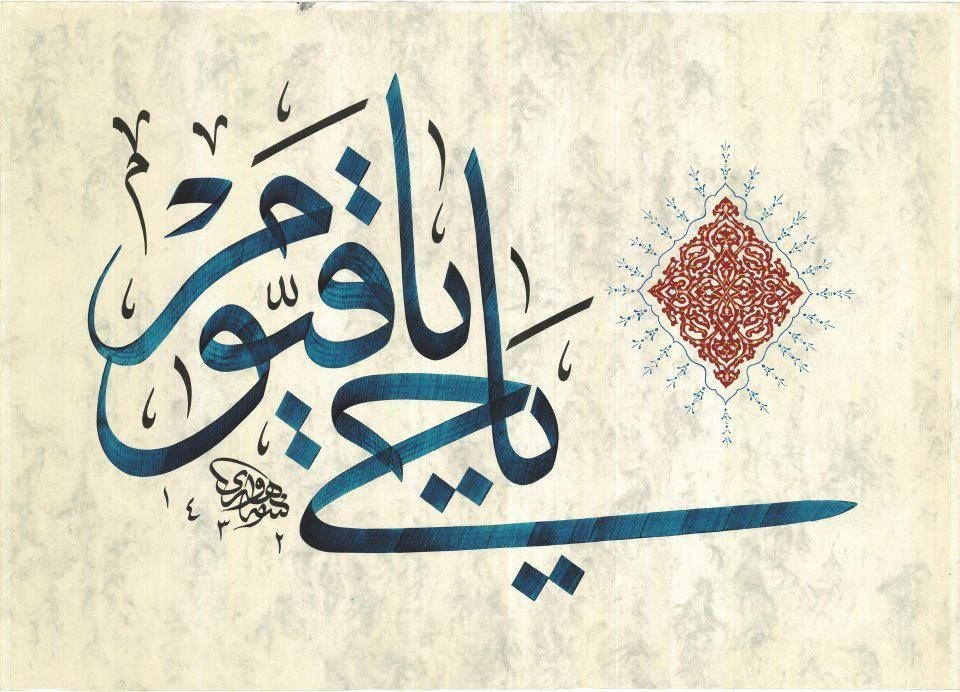 يا حي
يا قيوم
١٤٣٢